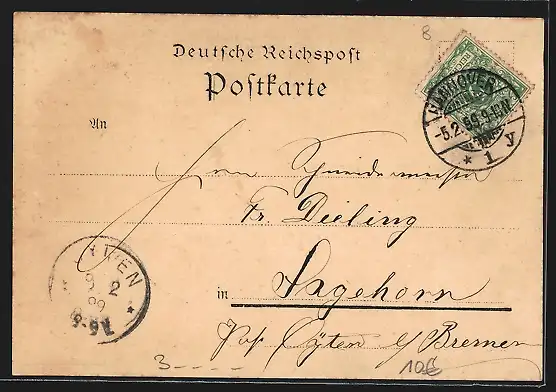 8
Deutsche Reichspost
Postkarte
HANNOVER
-5.2.99. 9-10V.
* 1 y
An
Herrn Schneidermeister
Fr. Dieling
in Sagehorn
Post Oyten b/ Bremen
9 2
99
3 - - - -
10€